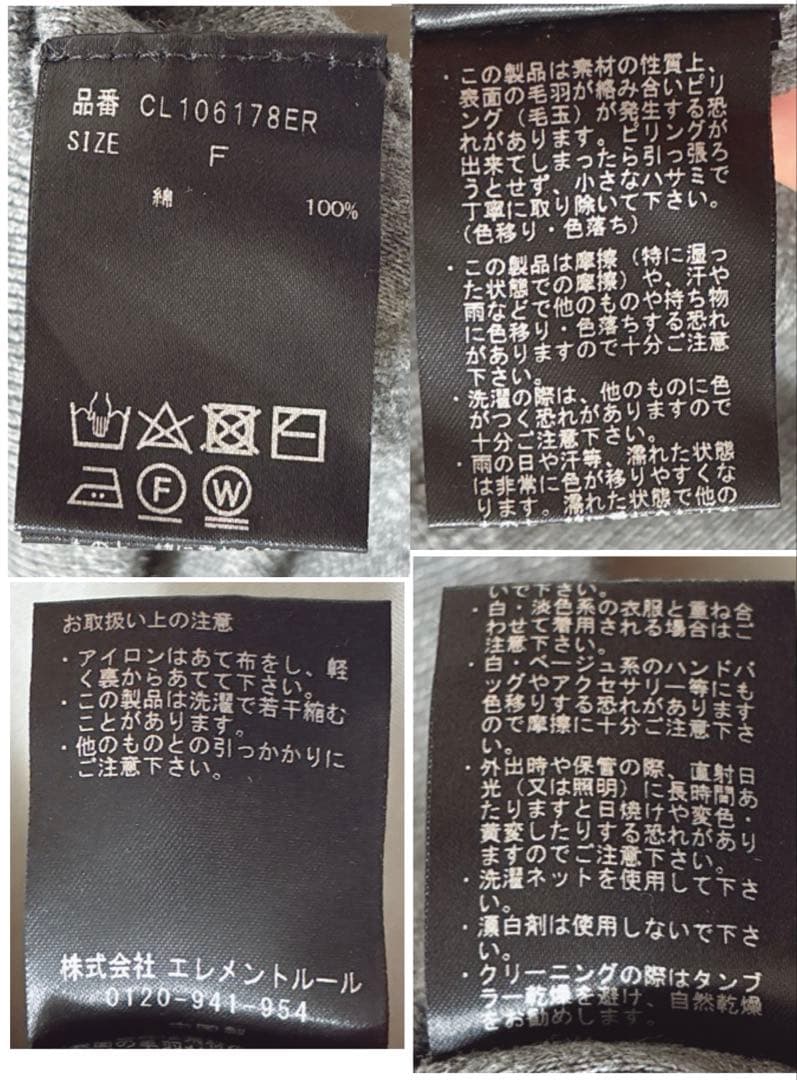 品番 CL106178ER
SIZE F
綿 100%
F W
・この製品は素材の性質上、
表面の毛羽が絡み合いピリ
ング（毛玉）が発生する恐
れがあります。ピリングが
出来てしまったら引っ張ろ
うとせず、小さなハサミで
丁寧に取り除いて下さい。
（色移り・色落ち）
・この製品は摩擦（特に湿っ
た状態での摩擦）や、汗や
雨などで他のものや持ち物
に色移り・色落ちする恐れ
がありますので十分ご注意
下さい。
・洗濯の際は、他のものに色
がつく恐れがありますので
十分ご注意下さい。
・雨の日や汗等、濡れた状態
は非常に色が移りやすくな
ります。濡れた状態で他の
お取扱い上の注意
・アイロンはあて布をし、軽
く裏からあてて下さい。
・この製品は洗濯で若干縮む
ことがあります。
・他のものとの引っかかりに
ご注意下さい。
株式会社 エレメントルール
0120-941-954
いで下さい。
・白・淡色系の衣服と重ね合
わせて着用される場合はご
注意下さい。
・白・ベージュ系のハンドバ
ッグやアクセサリー等にも
色移りする恐れがあります
ので摩擦に十分ご注意下さ
い。
・外出時や保管の際、直射日
光（又は照明）に長時間あ
たりますと日焼けや変色・
黄変したりする恐れがあり
ますのでご注意下さい。
・洗濯ネットを使用して下さ
い。
・漂白剤は使用しないで下さ
い。
・クリーニングの際はタンブ
ラー乾燥を避け、自然乾燥
をお勧めします。